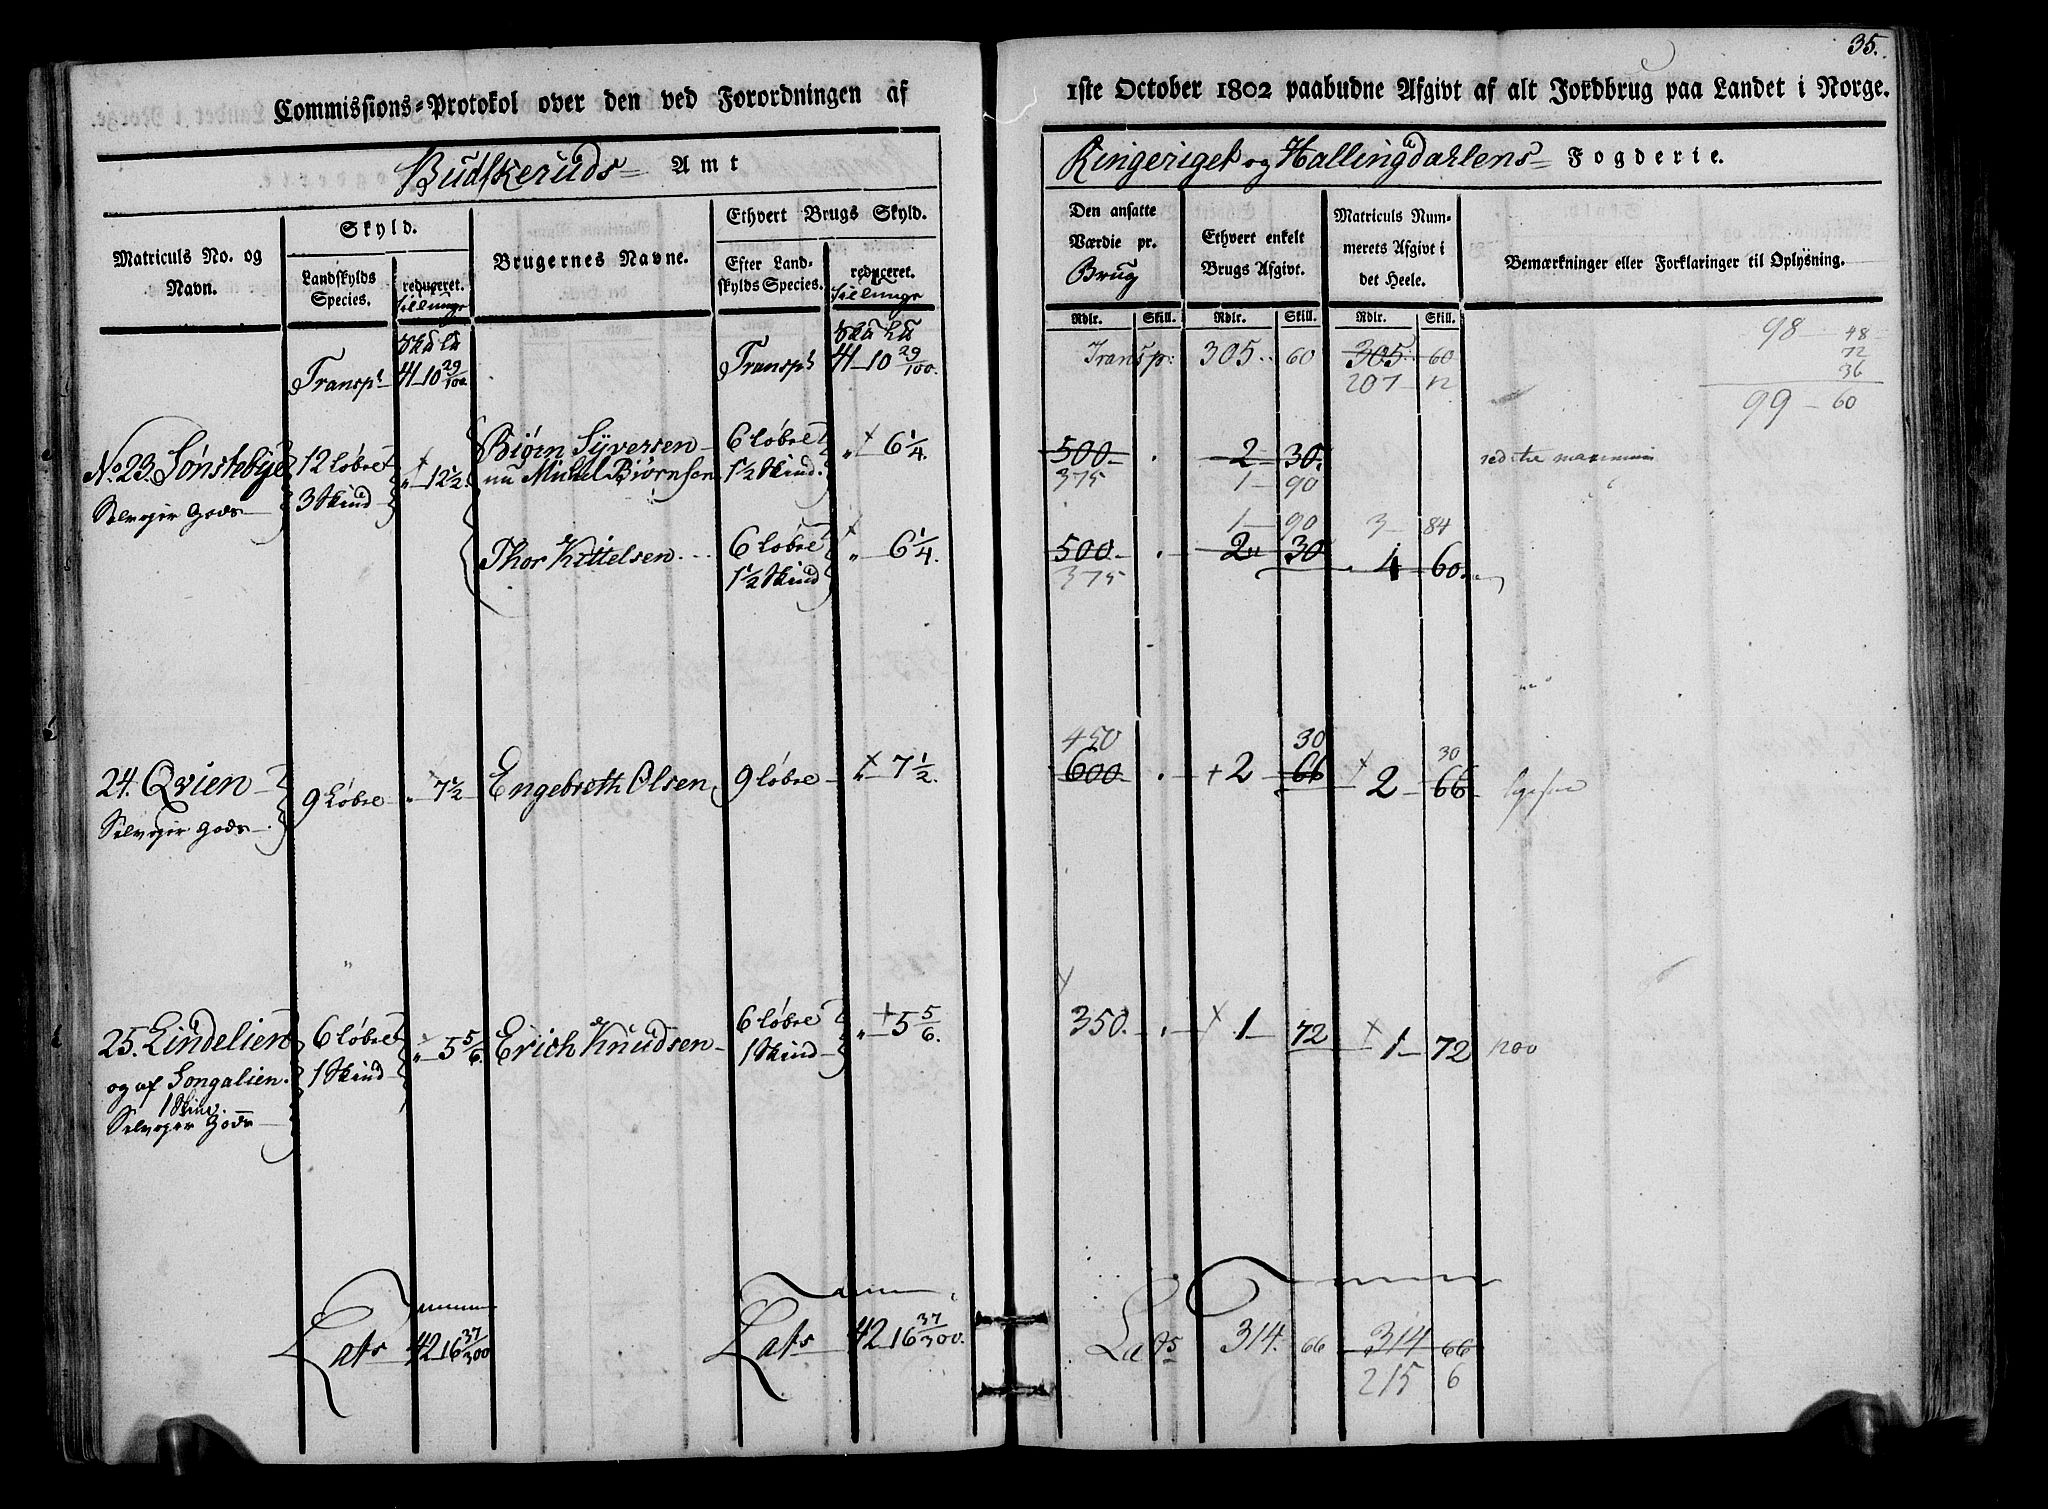 35.
Commissions-Protokol over den ved Forordningen af
1ste October 1802 paabudne Afgivt af alt Jordbrug paa Landet i Norge.
Budskeruds Amt
Ringeriget og Hallingdahlens Fogderie.
Matriculs No. og Navn.
Skyld.
Landskylds Species.
reduceret.
Brugernes Navne.
Ethvert Brugs Skyld.
Efter Landskylds Species.
reduceret.
Den ansatte Værdie pr. Brug
Ethvert enkelt Brugs Afgivt.
Matriculs Nummerets Afgivt i det Heele.
Bemærkninger eller Forklaringer til Oplysning.
Rdlr. Skill. Rdlr. Skill. Rdlr. Skill.
Transpt 41 10 29/100 Transpt 41 10 29/100.
Transp: 305.. 60 305. 60
207 12
98 48
72
36
99 60
No 23. Sønstebye 12 Løbre 3 Skind 12 1/2.
Selveyer Gods
Biørn Syversen
nu Mickel Biørnsen
6 Løbre 1 1/2 Skind. 6 1/4.
500 2 30.
375 1 90
Thor Kittelsen 6 Løbre 1 1/2 Skind 6 1/4.
1 90 3 84
500 2 30 4 60.
375
24. Qvien 9 Løbre 7 1/2 Engebreth Olsen 9 Løbre 7 1/2.
Selveyer Gods
450 30 30
600 2 66 2 66
25. Lindelien 6 Løbre 1 Skind 5 5/6 Erich Knudsen 6 Løbre 1 Skind 5 5/6.
og af Songalien.
1 Skind.
Selveyer Gods
350. 1 72 1 72
Lats 42 16 37/300 Lats 42 16 37/300.
Lats 314. 66 314 66
215 6